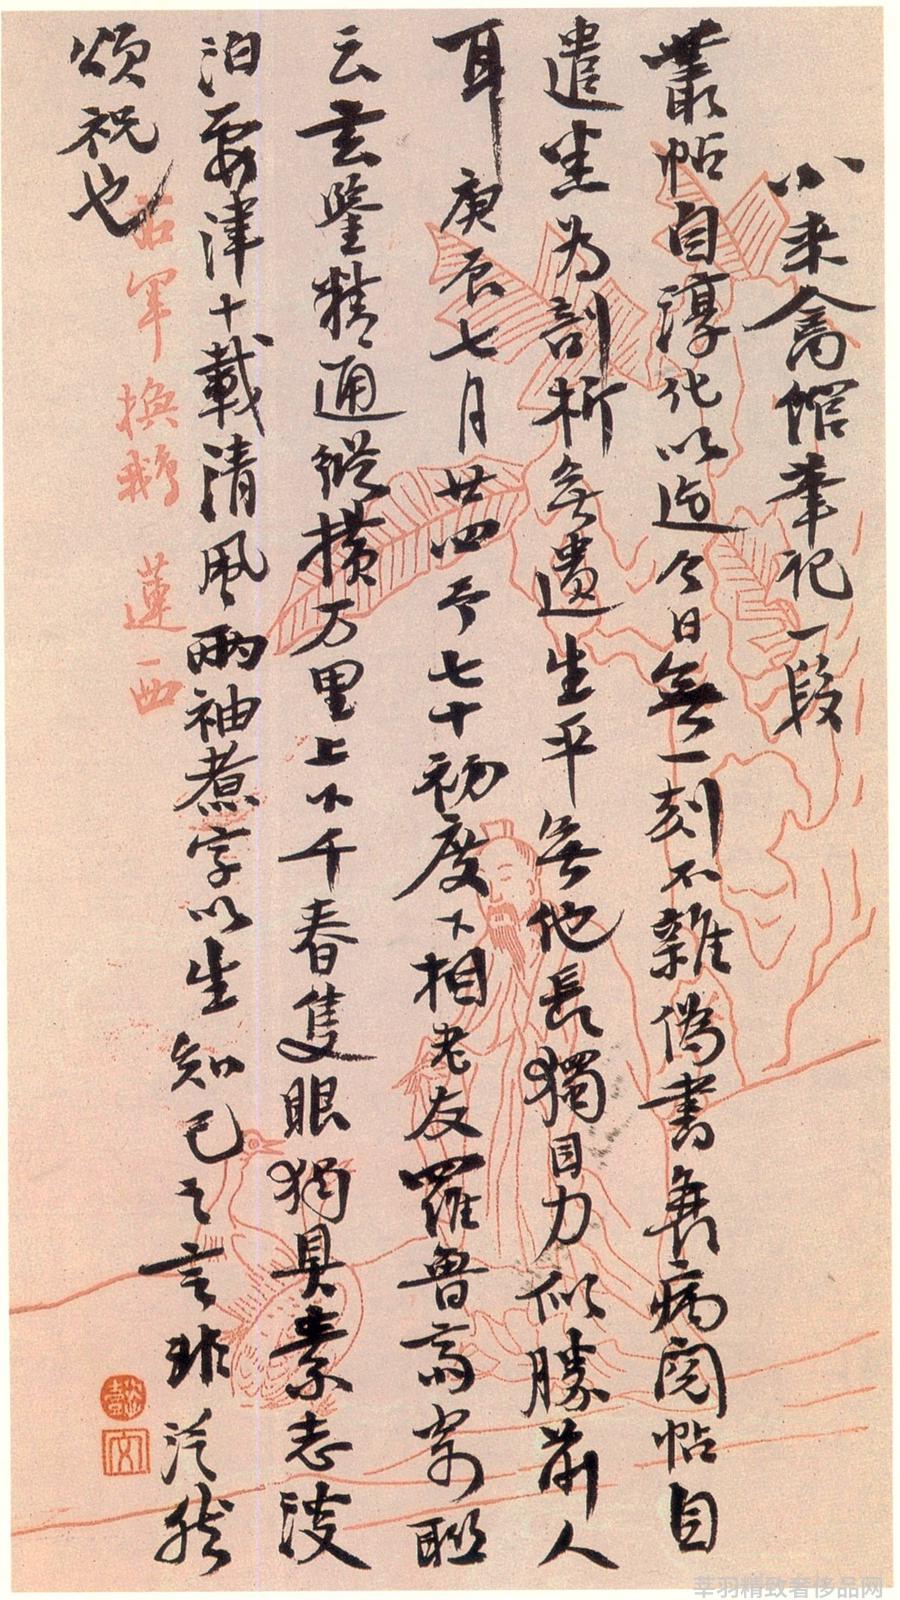 小来禽馆笔记一段
叢帖自淳化以迄今日無一刻不雜偽書衰病閲帖自
遣坐為剖析無遺生平無他長獨目力似勝前人
耳庚辰七月廿四予七十初度下相老友羅魯齋寄聯
云玄鑒精通縱横万里上下千春隻眼獨具素志淡
泊要津十載清風兩袖煮字以生知己之言非泛然
頌祝也
右軍換鵝 蓮西
莘羽精致奢侈品网